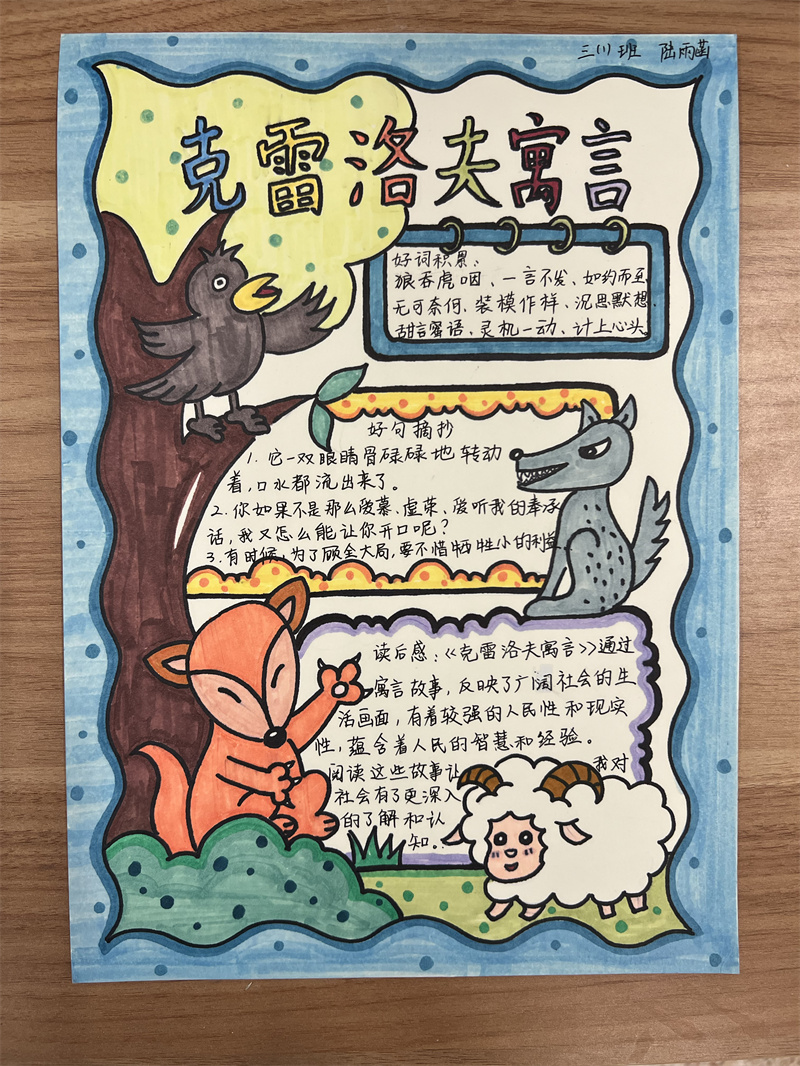 三(1)班 陆雨菡
克雷洛夫寓言
好词积累：
狼吞虎咽、一言不发、如约而至、
无可奈何、装模作样、沉思默想、
甜言蜜语、灵机一动、计上心头。
好句摘抄
1. 它一双眼睛骨碌碌地转动
着，口水都流出来了。
2. 你如果不是那么爱慕、虚荣、爱听我的奉承
话，我又怎么能让你开口呢？
3. 有时候，为了顾全大局，要不惜牺牲小的利益。
读后感：《克雷洛夫寓言》通过
寓言故事，反映了广阔社会的生
活画面，有着较强的人民性和现实
性，蕴含着人民的智慧和经验。
阅读这些故事让我对
社会有了更深入
的了解和认
知。